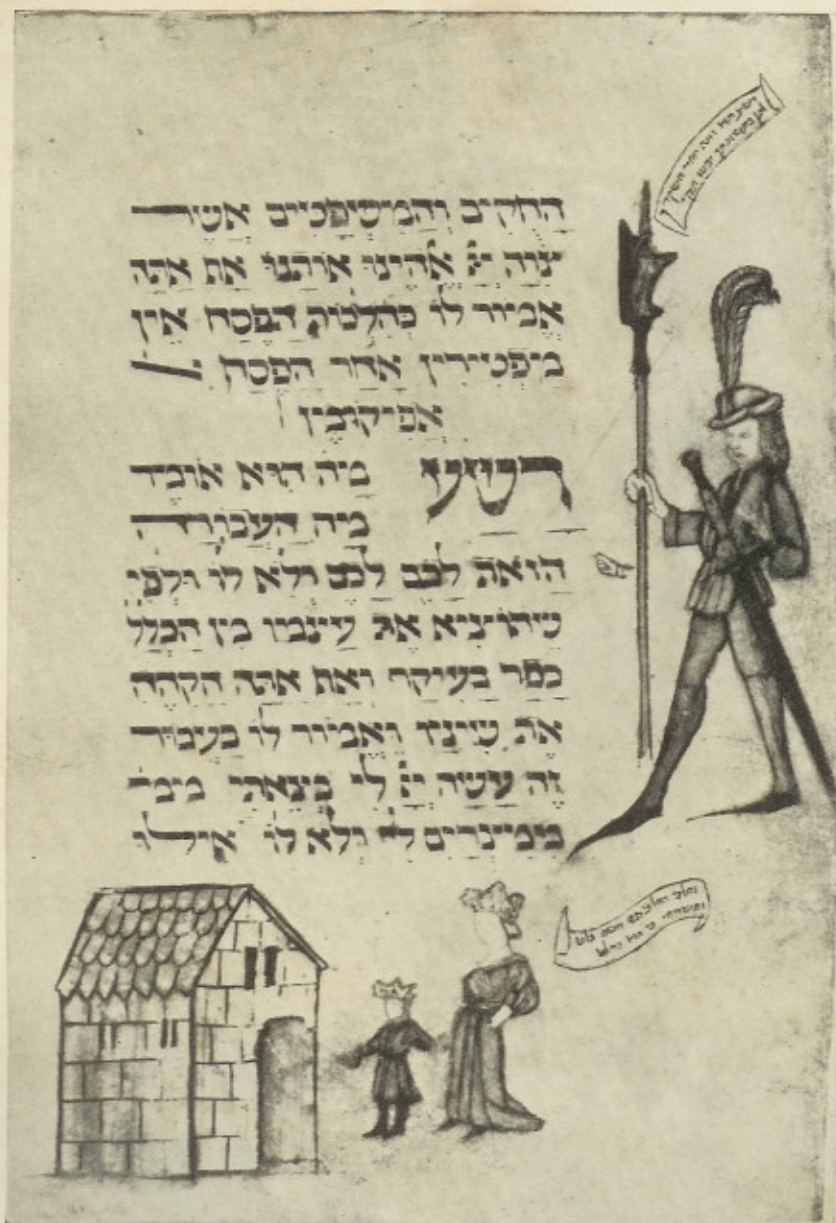 החקים והמשפטים אשר
צוה יי אלהינו אותנו אף אתה
אמור לו כהלכות הפסח אין
מפטירין אחר הפסח
אפיקומין
רשע מה הוא אומר
מה העבודה
הזאת לכם לכם ולא לו ולפי
שהוציא את עצמו מן הכלל
כפר בעיקר ואף אתה הקהה
את שיניו ואמור לו בעבור
זה עשה יי לי בצאתי ממ
ממצרים לי ולא לו אילו